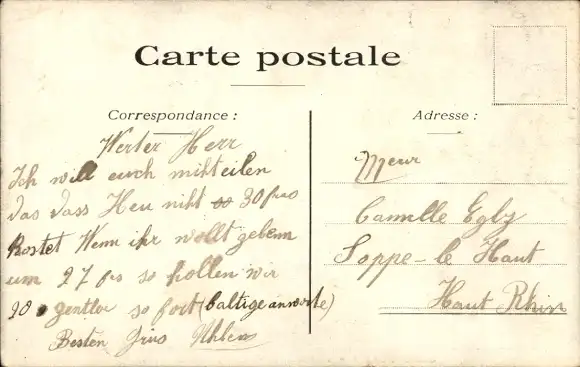 Carte postale
Correspondance :
Werter Herr
Ich will euch mihteilen
das dass Heu niht so 30 frs
kostet Wenn ihr wollt gebenn
um 27 frs so hollen wir
20 so fort (baltige anworte)
Besten Grus
Adresse :
Camille Egly
Soppe-le Haut
Haut Rhin